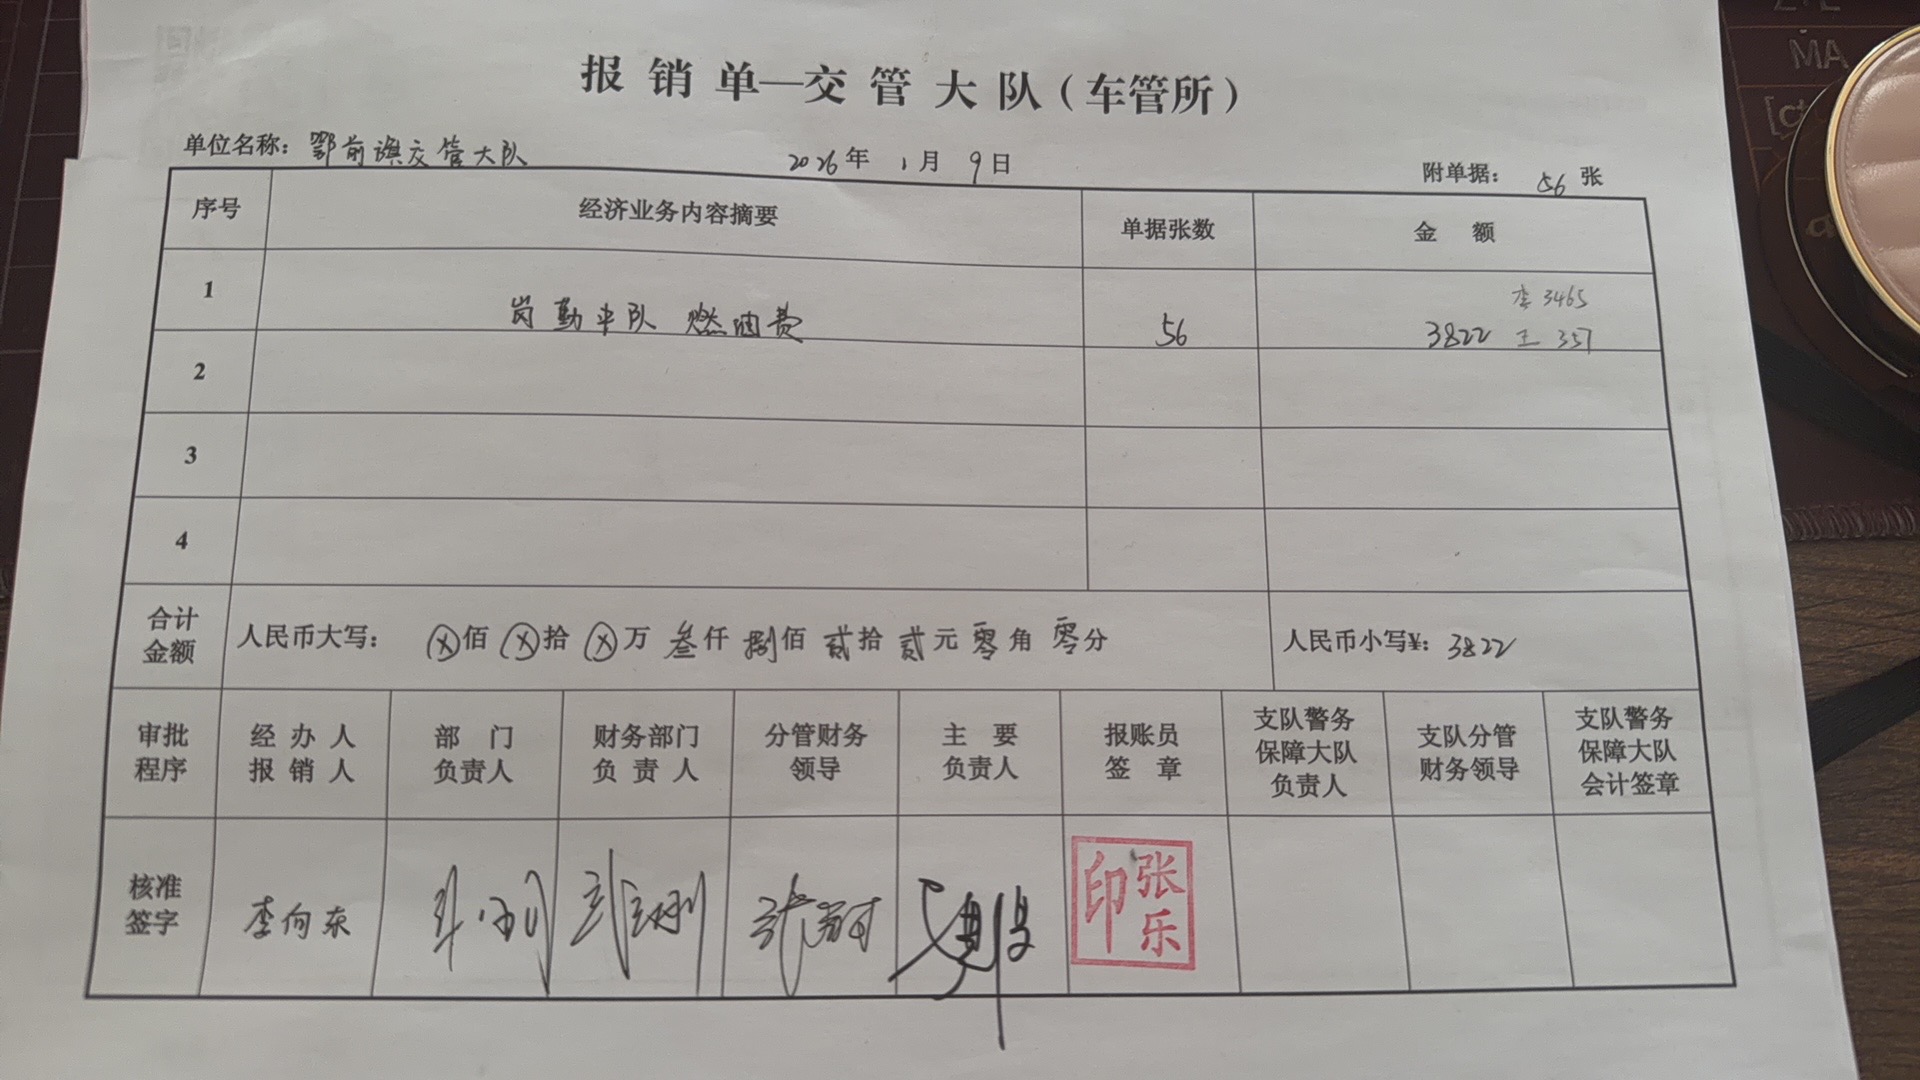 报销单—交管大队（车管所）
单位名称：鄂前旗交管大队 2026年1月9日 附单据：56张
序号 经济业务内容摘要 单据张数 金 额
1 岗勤中队 燃油费 56 3822
李3465
王 357
2
3
4
合计金额 人民币大写：ⓧ佰ⓧ拾ⓧ万叁仟捌佰贰拾贰元零角零分 人民币小写¥：3822
审批程序 经办人报销人 部门负责人 财务部门负责人 分管财务领导 主要负责人 报账员签章 支队警务保障大队负责人 支队分管财务领导 支队警务保障大队会计签章
核准签字 李向东 张乐印